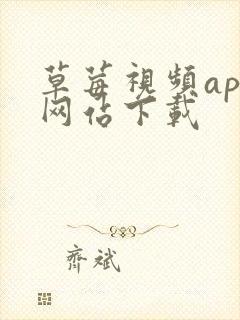 草莓視頻ap
网估下載
齊斌